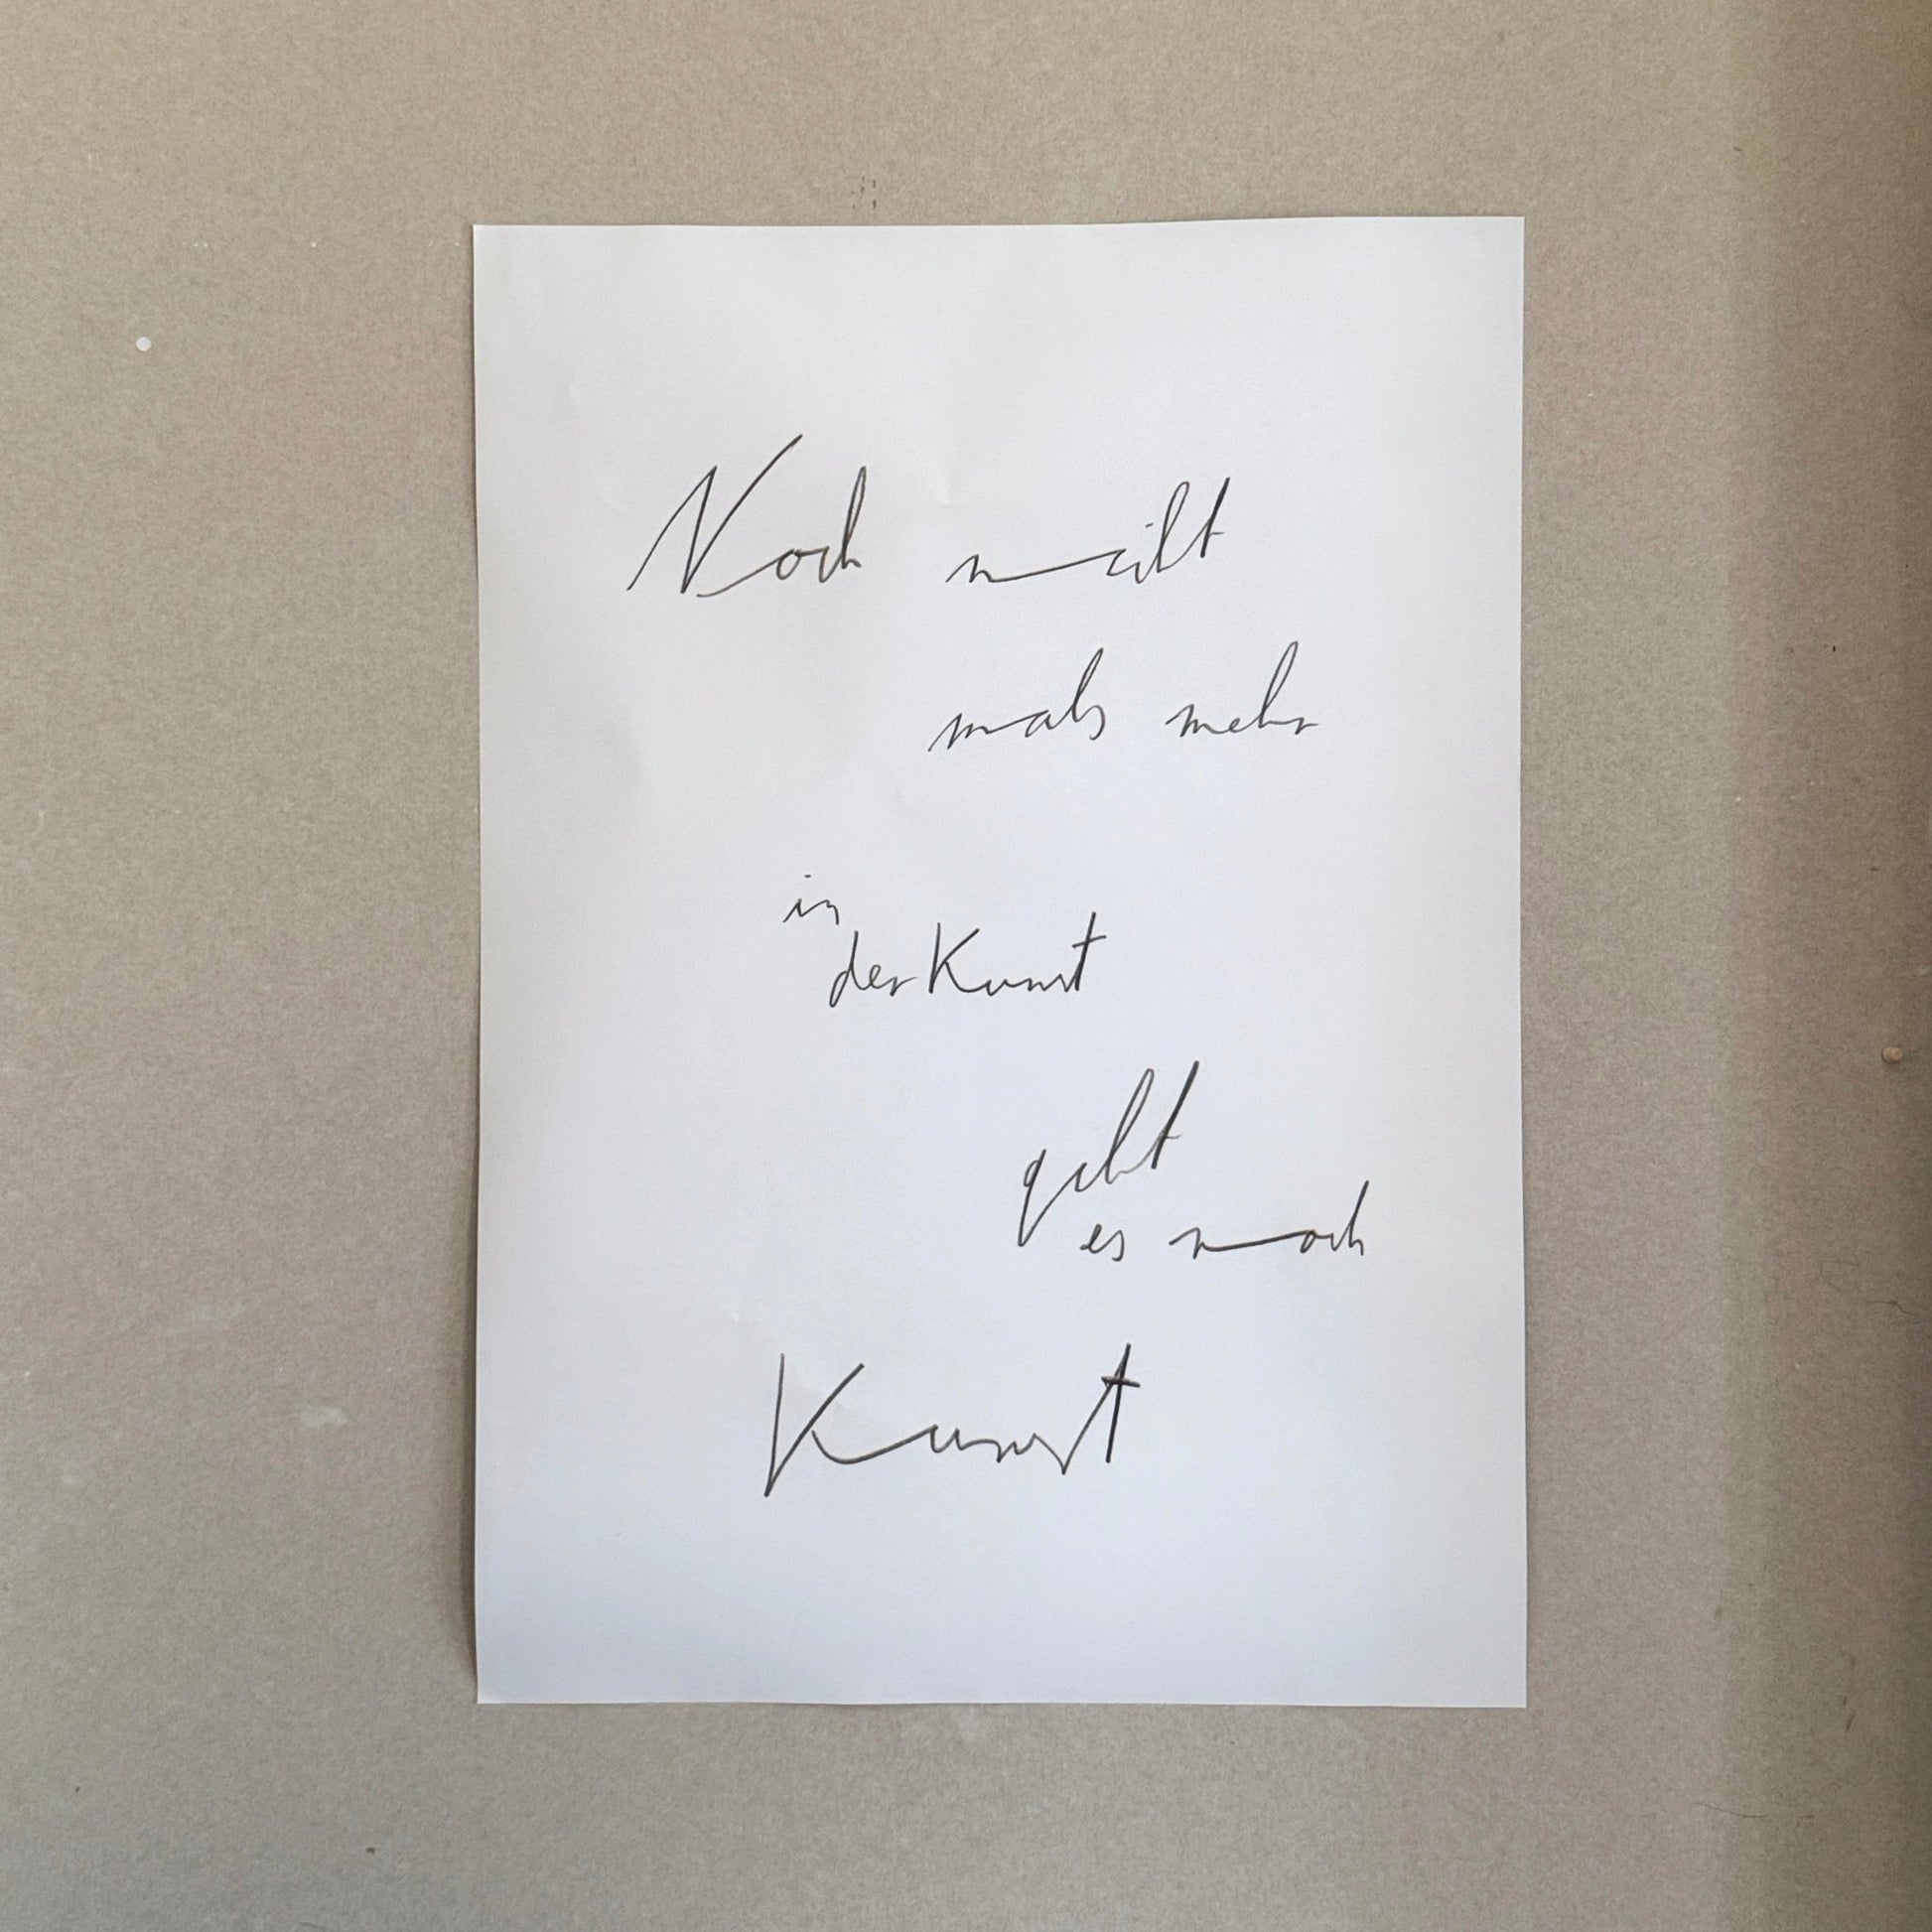 Noch nicht
mals mehr
in
der Kunst
es noch
Kunst